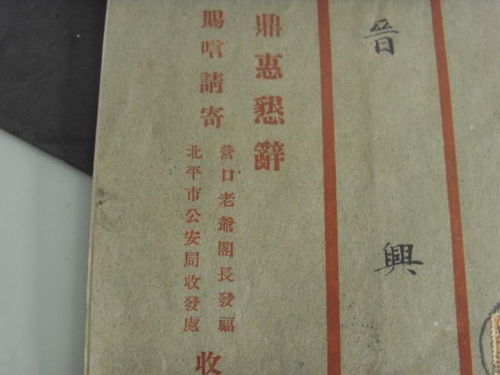 晉興
鼎惠懇辭
賜唁請寄
營口老爺閣長發福
北平市公安局收發處
收